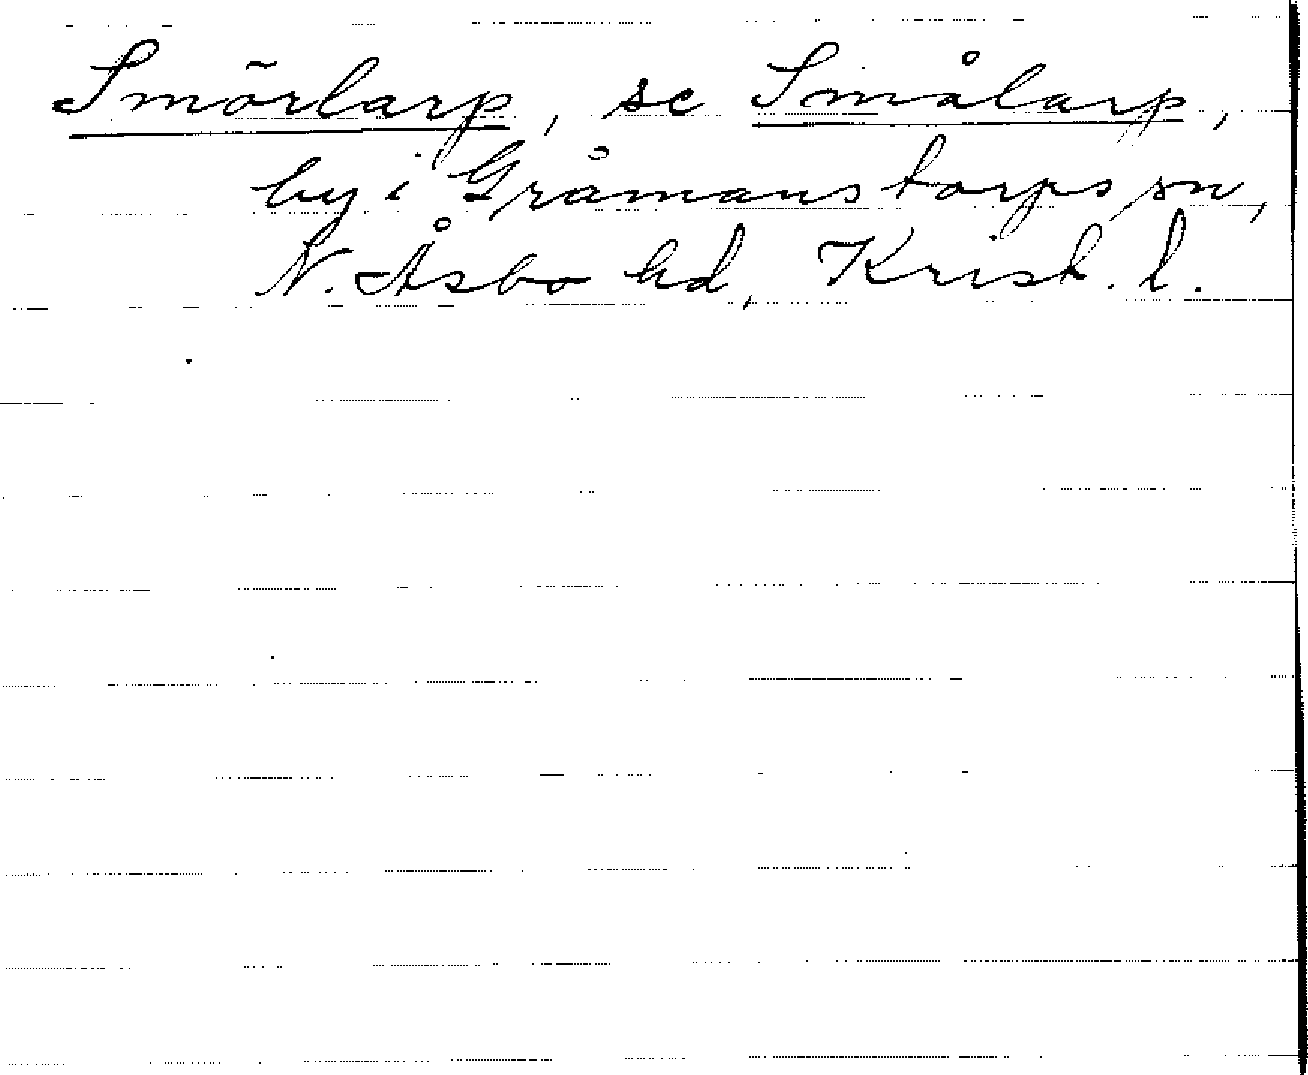 Smörlarp, se Smålarp,
by i Gråmanstorps sn,
N. Åsbo hd, Krist. l.